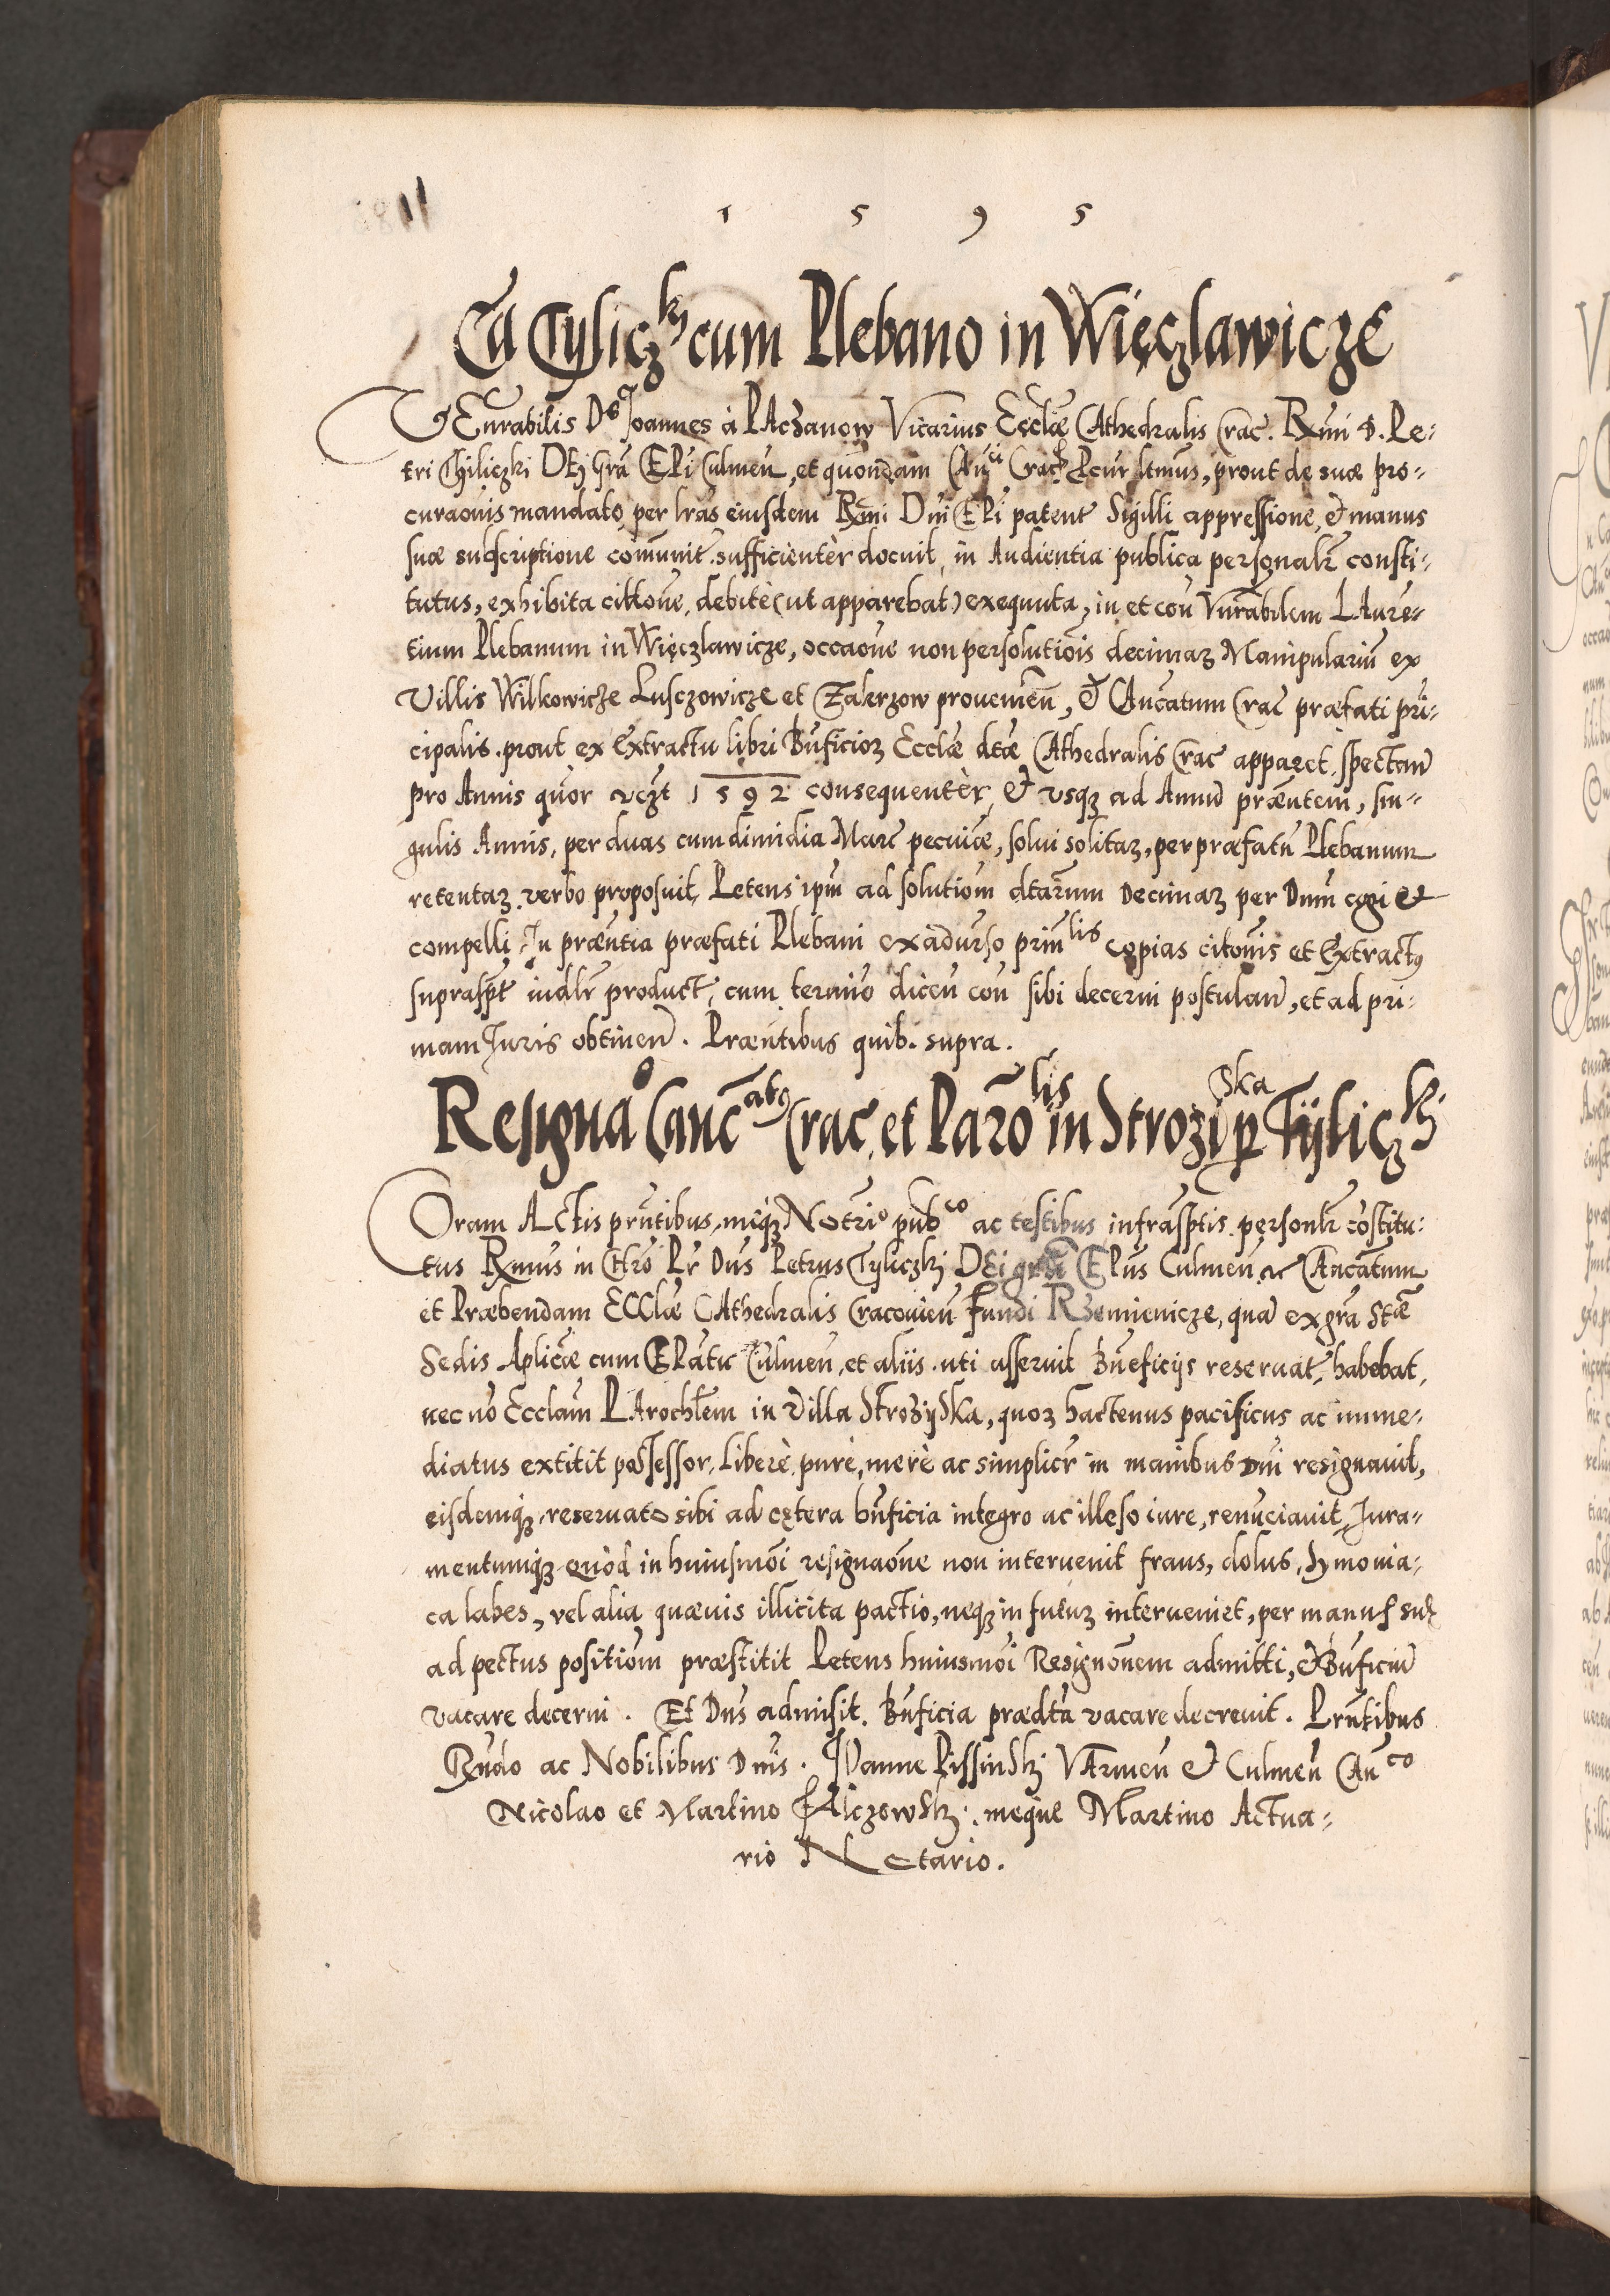 1595
Ca Tyliczky cum Plebano in Więczlawicze
VEnrabilis Ds Joannes à PAczanow Vicarius Ecclæ CAthedralis Crac. Rmi D. Pe-
tri Thiliczki DEj Gra EPi Culmen, et quondam Canci Crac Pcur ltmus, prout de suæ pro-
curaonis mandato, per lras eiusdem Rmi Dni EPi patent Sigilli appressione, & manus
suæ subscriptione communit. sufficientèr docuit, in Audientia publica personalr consti-
tutus, exhibita cittone, debitè (ut apparebat) exequuta, in et con Vnrabilem LAure-
tium Plebanum in Więczlawicze, occaone non persolutiois decimaꝝ Manipulariũ ex
Villis Wilkowicze Lusczowicze et Zakrzow prouenien, & CAncatum Crac præfati prĩ-
cipalis. prout ex Extractu libri Bnficioꝝ Ecclæ dtæ CAthedralis Crac apparet. spectaã
pro Annis quor vczt 1592 consequentèr, & vsqꝫ ad Annũ præntem, sin-
gulis Annis, per duas cum dimidia Marc pecuiæ, solui solitaꝝ, per præfatũ Plebanum
retentaꝝ. verbo proposuit, Petens ipm ad solutiom dtarum Decimaꝝ per Dnm cogi et
compelli. In præntia præfati Plebani ex aduerso prinlis copias citonis et Extractꝰ
suprascpt iudlr product, cum termino dicen con sibi decerni postulan, et ad pri-
mam Juris obtinen. Præntibus quib. supra.
Resignao Cancatꝰ Crac. et Parolis in Strozyska p Tÿliczki
COram ACtis prntibus, meqꝫ Notrio pubco ac testibus infrascptis. personlr cõstitu-
tus Rmus in Chro Pr Dns Petrus Tyliczkj DEi gra EPus Culmen ac CAncatum
et Præbendam ECClæ CAthedralis Cracouien Fundi Rzemienicze, quã ex gra Stæ
Sedis Aplicæ cum EPatu Culmen, et aliis. uti asseruit Bneficijs reseruat, habebat,
nec nõ Ecclam PArochlem in Villa StrozijSka, quoꝝ hactenus pacificus ac imme-
diatus extitit possessor, liberè, purè, merè ac simplicr in manibus Dni resignauit,
eisdemqꝫ, reseruato sibi ad cętera bnficia integro ac illeso iure, renũciauit, Jura-
mentumqꝫ quòd in huiusmõi resignaone non interuenit fraus, dolus, Symonia-
ca labes, vel alia quæuis illicita pactio, neqꝫ in futuꝝ interueniet, per manus suæ
ad pectus positiom præstitit Petens huiusmõi Resignonem admitti, & Bnficiũ
vacare decerni. Et Dns admisit. Bnficia prædta vacare decreuit. Prntibus
Rndo ac Nobilibus Dnis. JOanne PissinSkj VArmen & Culmen Canco
Nicolao et Martino FAlczowSkj. meque Martino Actua-
rio Notario.